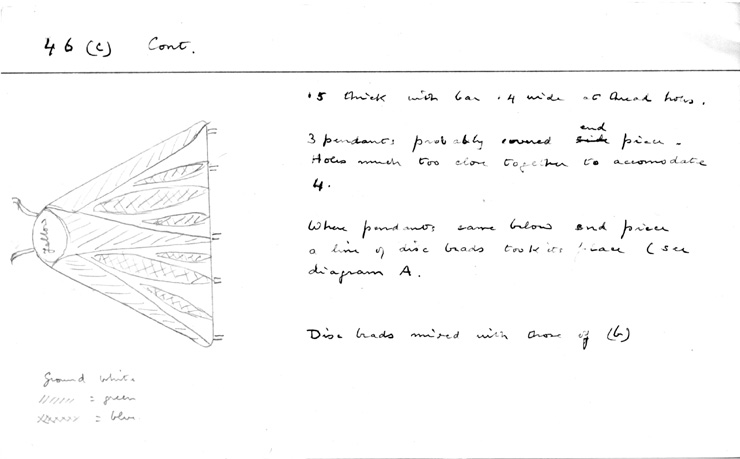 46 (c) Cont.
.5 thick with bar .4 wide at thread holes.
end
3 pendants probably covered side piece.
Holes much too close together to accomodate
4.
Where pendants came below end piece
a line of disc beads took its place (see
diagram A.
Disc beads mixed with those of (b)
yellow
Ground white
= green
= blue